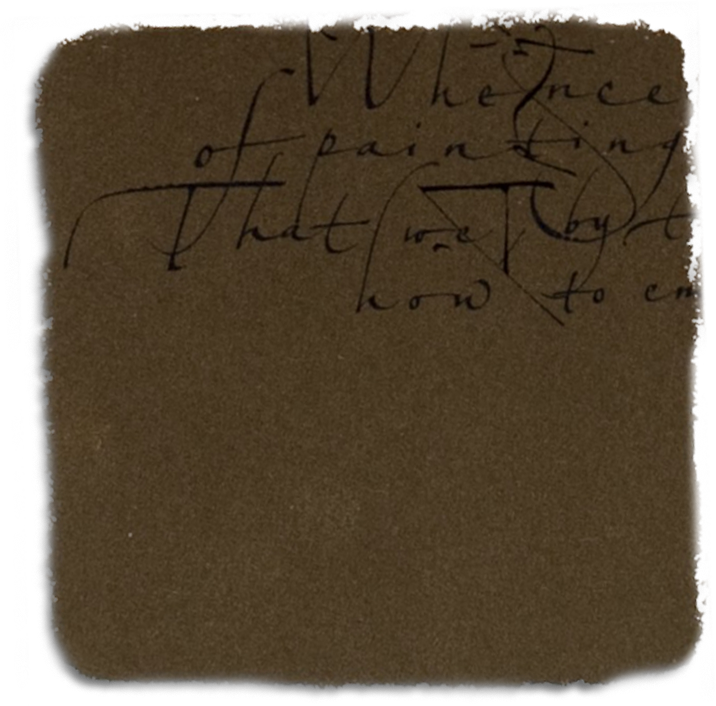 Whence
of painting
That we by t
how to em